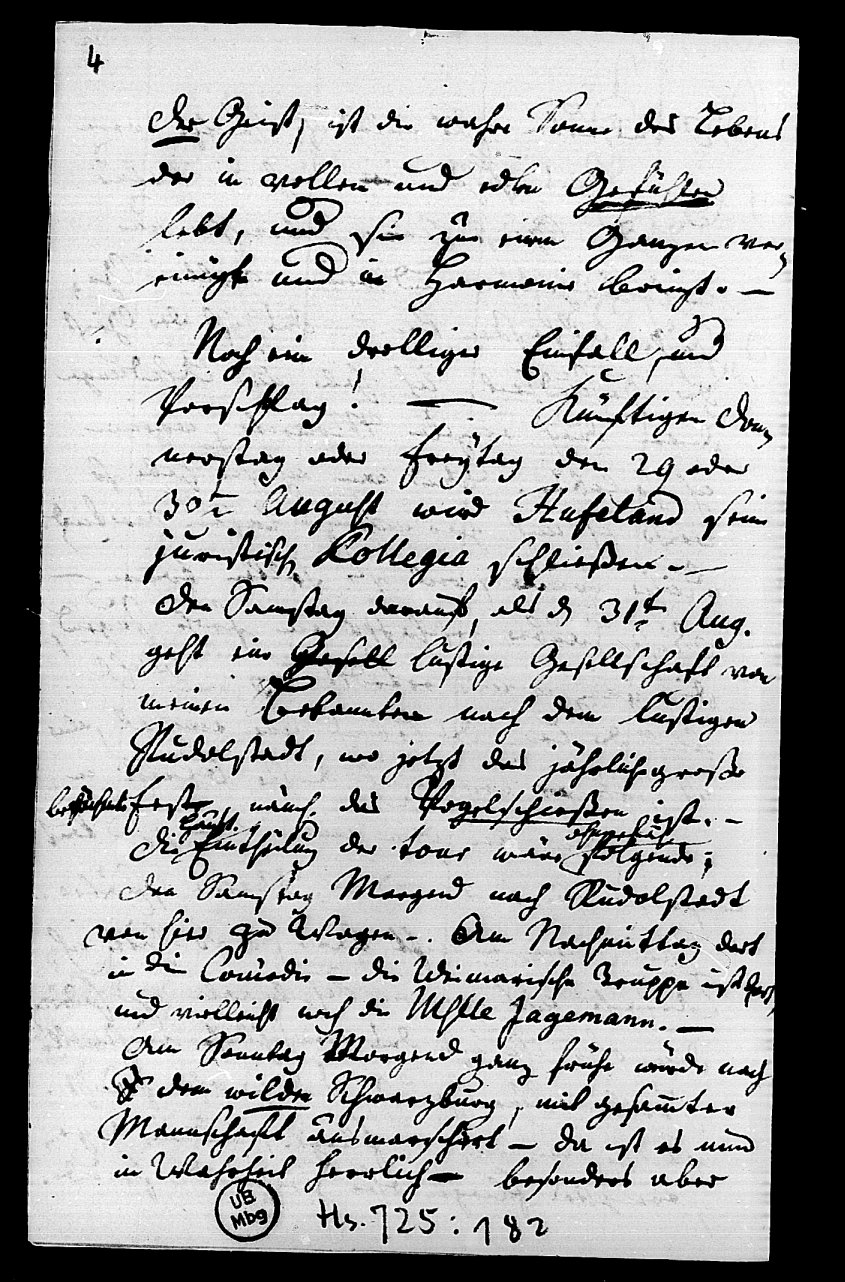 4
der Geist, ist die wahre Sonne des Lebens
der in vollen und edlen Gefühlen
lebt, und sie zu einem Ganzen ver-
einigt und in Harmonie bringt. —
Noch ein drolliger Einfall, und
Vorschlag! — Künftigen Don-
nerstag oder Freytag den 29 oder
30t August wird Hufeland sein
juristisch Kollegia schließen. —
Den Samstag darauf, als d 31t Aug.
geht eine Gesell lustige Gesellschaft von
meinen Bekannten nach dem lustigen
Rudolstadt, wo jetzt das jährlich große
Fest, näml. das Vogelschießen ist. —
Die Eintheilung der tour wäre ohngefähr folgende:
Den Samstag Morgend nach Rudolstadt
von hier zu Wagen. — Am Nachmittag dort
in die Comödie — die Weimarische Truppe ist dort,
und vielleicht noch die Mslle Jagemann. —
Am Sonntag Morgend ganz frühe würde nach
dem wilden Schwarzburg, mit gesam̅ter
Mannschaft ausmarschirt — da ist es nun
in Wahrheit herrlich — besonders aber
UB
Mbg
Hs. 725: 182